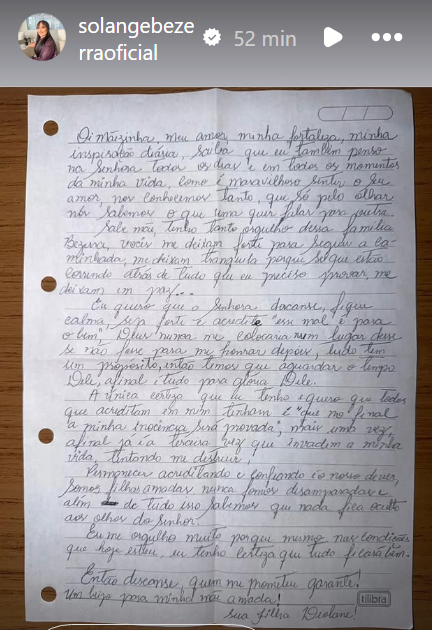 solangebeze
rraoficial
52 min
Oi mãezinha, meu amor, minha fortaleza, minha
inspiração diária, saiba que eu também penso
na senhora todos os dias e em todos os momentos
da minha vida, como é maravilhoso sentir o seu
amor, nos conhecemos tanto, que só pelo olhar
nós sabemos o que uma quer falar para outra.
Sabe mãe, tenho tanto orgulho dessa família
Bezerra, vocês me deixam forte para seguir a ca-
minhada, me deixam tranquila porque sei que estão
correndo atrás de tudo que eu preciso provar, me
deixam em paz...
Eu quero que a senhora descanse, fique
calma, seja forte e acredite "esse mal é para
o bem", Deus nunca me colocaria num lugar desse
se não fosse para me honrar depois, tudo tem
um propósito, então temos que aguardar o tempo
Dele, afinal é tudo para glória Dele.
A única certeza que eu tenho e quero que todos
que acreditam em mim tenham é "que no final
a minha inocência será provada", mais uma vez,
afinal já é a terceira vez que invadem a minha
vida, tentando me destruir.
Permanecer acreditando e confiando é o nosso dever,
somos filhas amadas nunca fomos desamparadas e
além de tudo isso sabemos que nada fica oculto
aos olhos do Senhor.
Eu me orgulho muito porque mesmo nas condições
que hoje estou, eu tenho certeza que tudo ficará bem.
Então descanse, quem me prometeu garante!
Um beijo para minha mãe amada!
tilibra
Sua filha Deolane!